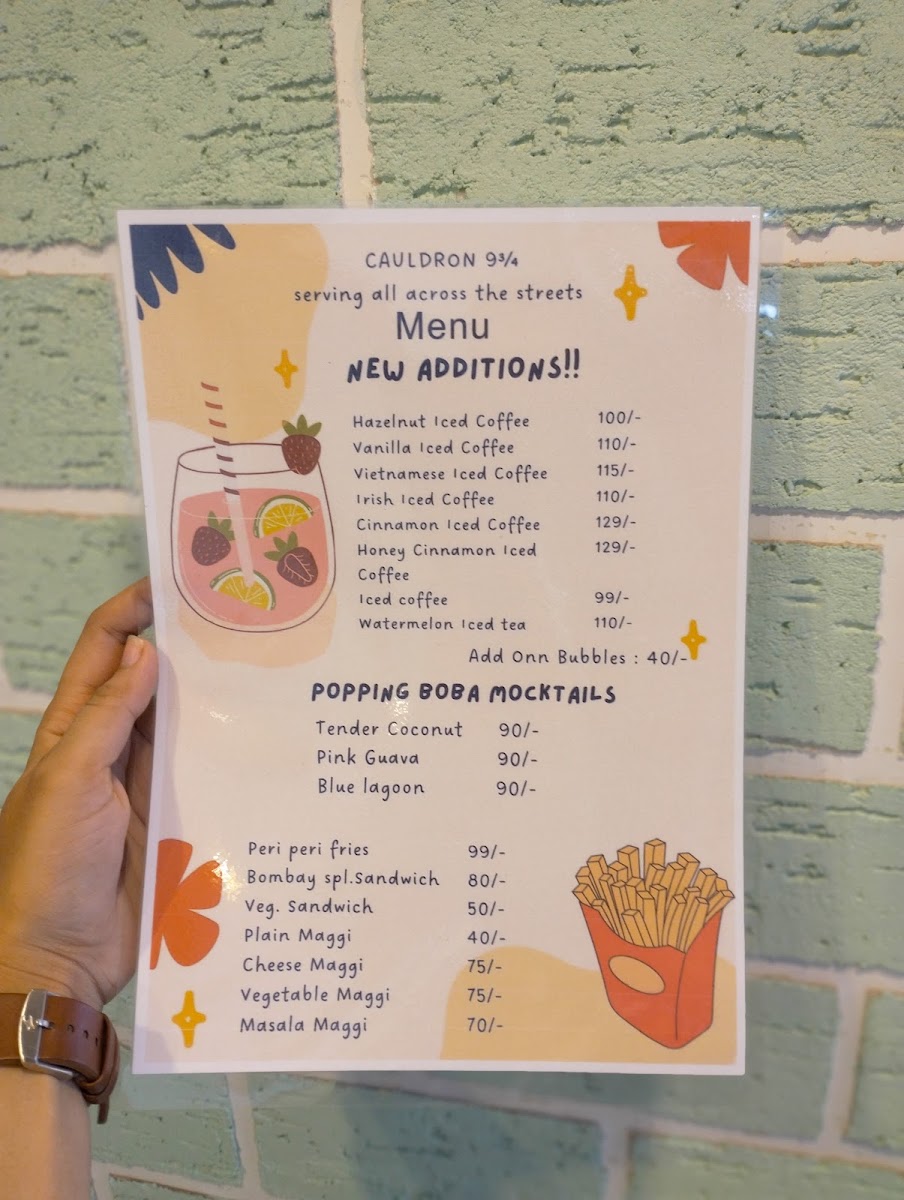 CAULDRON 9¾
serving all across the streets
Menu
NEW ADDITIONS!!
Hazelnut Iced Coffee 100/-
Vanilla Iced Coffee 110/-
Vietnamese Iced Coffee 115/-
Irish Iced Coffee 110/-
Cinnamon Iced Coffee 129/-
Honey Cinnamon Iced 129/-
Coffee
Iced coffee 99/-
Watermelon Iced tea 110/-
Add Onn Bubbles : 40/-
POPPING BOBA MOCKTAILS
Tender Coconut 90/-
Pink Guava 90/-
Blue lagoon 90/-
Peri peri fries 99/-
Bombay spl.Sandwich 80/-
Veg. Sandwich 50/-
Plain Maggi 40/-
Cheese Maggi 75/-
Vegetable Maggi 75/-
Masala Maggi 70/-